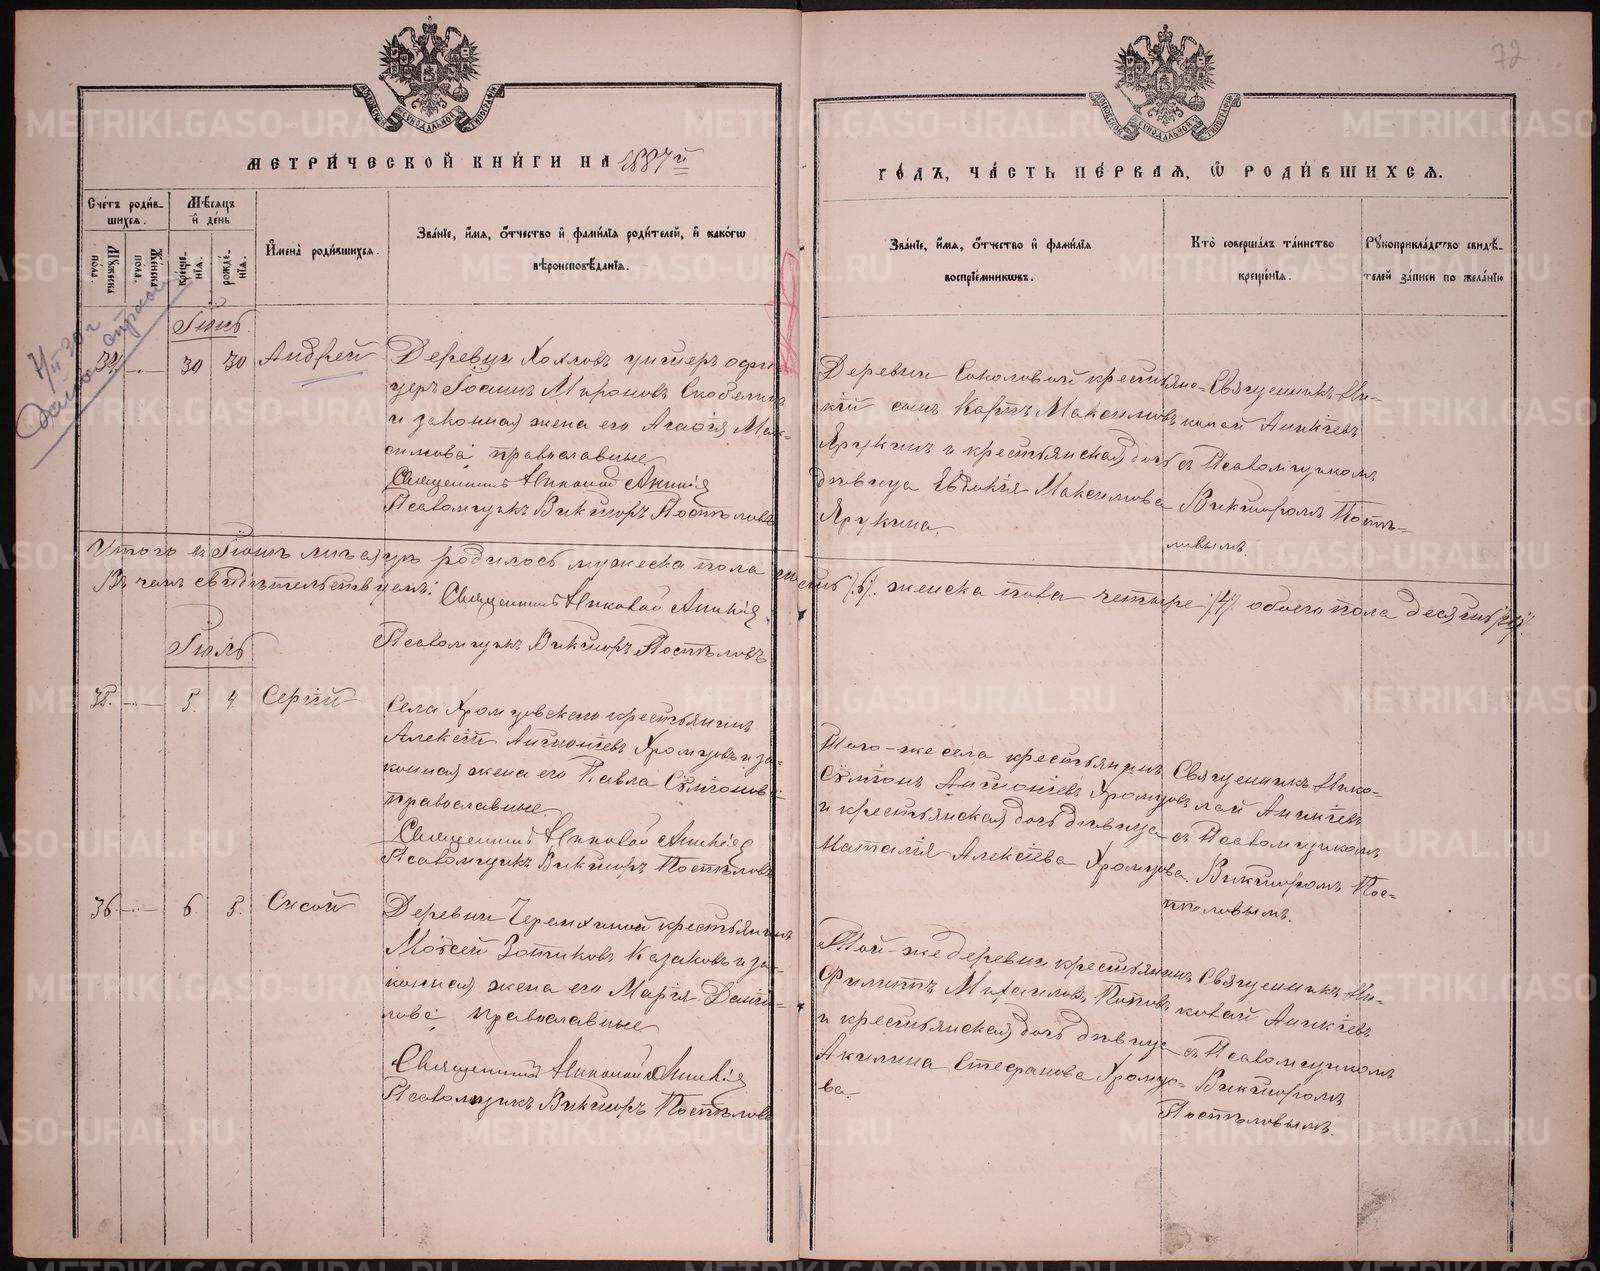 72
МЕТРИ́ЧЕСКОЙ КНИ́ГИ НА 1887й
ГО́ДЪ, ЧА́СТЬ ПЕ́РВАЯ, Ѡ РОДИ́ВШИХСЯ.
Сче́тъ роди́в-
шихся.
Мꙋжеска по́ла.
Же́нска по́ла.
Мѣ́сяцъ
и҆ де́нь
креще́-
нїя.
рожде́-
нїя.
И҆мена̀ роди́вшихся.
Зва́нїе, и҆́мя, ѻ҆́тчество и҆ фами́лїя роди́телей, и҆ како́гѡ
вѣроисповѣ́данїя.
Зва́нїе, и҆́мя, ѻ҆́тчество и҆ фами́лїя
воспрїе́мникѡвъ.
Кто̀ соверша́лъ та́инство
креще́нїя.
Рꙋкоприкла́дство свидѣ́-
телей за́писи по жела́нїю
Іюнь
30 30 Андрей
Деревни Хохловъ унтеръ офи-
церъ Іоаннъ Мироновъ Скобелинъ
и законная жена его Агафія Мак-
симова, православные
Священникъ Николай Аникіев
Псаломщикъ Викторъ Поспѣловъ
Деревни Соколовой крестьянс-
кій сынъ Карпъ Максимовъ
Ярукинъ и крестьянская дочь
дѣвица Евдокія Максимова
Ярукина.
Священникъ Ни-
колай Аникіевъ
съ Псаломщикомъ
Викторомъ Поспѣ-
ловымъ.
Итого въ Іюнѣ мѣсяцѣ родилось мужеска пола шесть /6/. женска пола четыре /4/ обоего пола десять /10/.
Въ чемъ свидѣтельствуемъ: Священникъ Николай Аникіев
Псаломщикъ Викторъ Поспѣловъ
Іюль
35. 5. 4 Сергій
Села Хромцовскаго крестьянинъ
Алексій Антоніевъ Хромцовъ и за-
конная жена его Павла Сѵмеонова
православные
Священникъ Николай Аникіев
Псаломщикъ Викторъ Поспѣловъ
Того-же села крестьянинъ
Сѵмеонъ Антоніевъ Хромцовъ
и крестьянская дочь дѣвица
Наталія Алексіева Хромцова.
Священникъ Нико-
лай Аникіевъ
съ Псаломщикомъ
Викторомъ Пос-
пѣловымъ.
36 6 5. Сисой
Деревни Черемхиной крестьянинъ
Моѵсей Зотиковъ Казаковъ и за-
конная жена его Марія Дани-
лова, православные
Священникъ Николай Аникіев
Псаломщикъ Викторъ Поспѣловъ
Той-же деревни крестьянинъ
Филиппъ Михаиловъ Поповъ
и крестьянская дочь дѣвица
Акилина Стефанова Хромцо-
ва.
Священникъ Ни-
колай Аникіевъ
съ Псаломщикомъ
Викторомъ
Поспѣловымъ.
METRIKI.GASO-URAL.RU